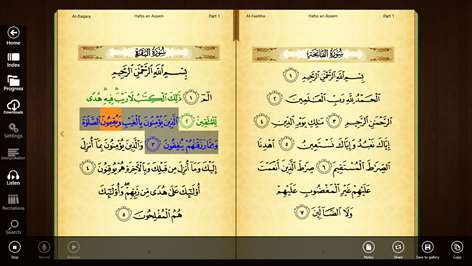 Al-Faatiha Hafts an Assem Part 1
سُورَةُ الفَاتِحَةِ
بِسْمِ ٱللَّهِ ٱلرَّحْمَٰنِ ٱلرَّحِيمِ ١
ٱلْحَمْدُ لِلَّهِ رَبِّ ٱلْعَٰلَمِينَ ٢
ٱلرَّحْمَٰنِ ٱلرَّحِيمِ ٣ مَٰلِكِ يَوْمِ ٱلدِّينِ ٤
إِيَّاكَ نَعْبُدُ وَإِيَّاكَ نَسْتَعِينُ ٥ ٱهْدِنَا
ٱلصِّرَٰطَ ٱلْمُسْتَقِيمَ ٦ صِرَٰطَ ٱلَّذِينَ أَنْعَمْتَ
عَلَيْهِمْ غَيْرِ ٱلْمَغْضُوبِ عَلَيْهِمْ
وَلَا ٱلضَّآلِّينَ ٧
Al-Baqara Hafts an Assem Part 1
سُورَةُ البَقَرَةِ
بِسْمِ ٱللَّهِ ٱلرَّحْمَٰنِ ٱلرَّحِيمِ
الٓمٓ ١ ذَٰلِكَ ٱلْكِتَٰبُ لَا رَيْبَ فِيهِ هُدًى
لِّلْمُتَّقِينَ ٢ ٱلَّذِينَ يُؤْمِنُونَ بِٱلْغَيْبِ وَيُقِيمُونَ ٱلصَّلَوٰةَ
وَمِمَّا رَزَقْنَٰهُمْ يُنفِقُونَ ٣ وَٱلَّذِينَ يُؤْمِنُونَ بِمَآ أُنزِلَ
إِلَيْكَ وَمَآ أُنزِلَ مِن قَبْلِكَ وَبِٱلْءَاخِرَةِ هُمْ يُوقِنُونَ ٤
أُو۟لَٰٓئِكَ عَلَىٰ هُدًى مِّن رَّبِّهِمْ وَأُو۟لَٰٓئِكَ
هُمُ ٱلْمُفْلِحُونَ ٥
Home
Index
Progress
Downloads
Settings
Interpretation
Listen
Recitations
Search
Stop Record Notes Share Save to gallery Copy